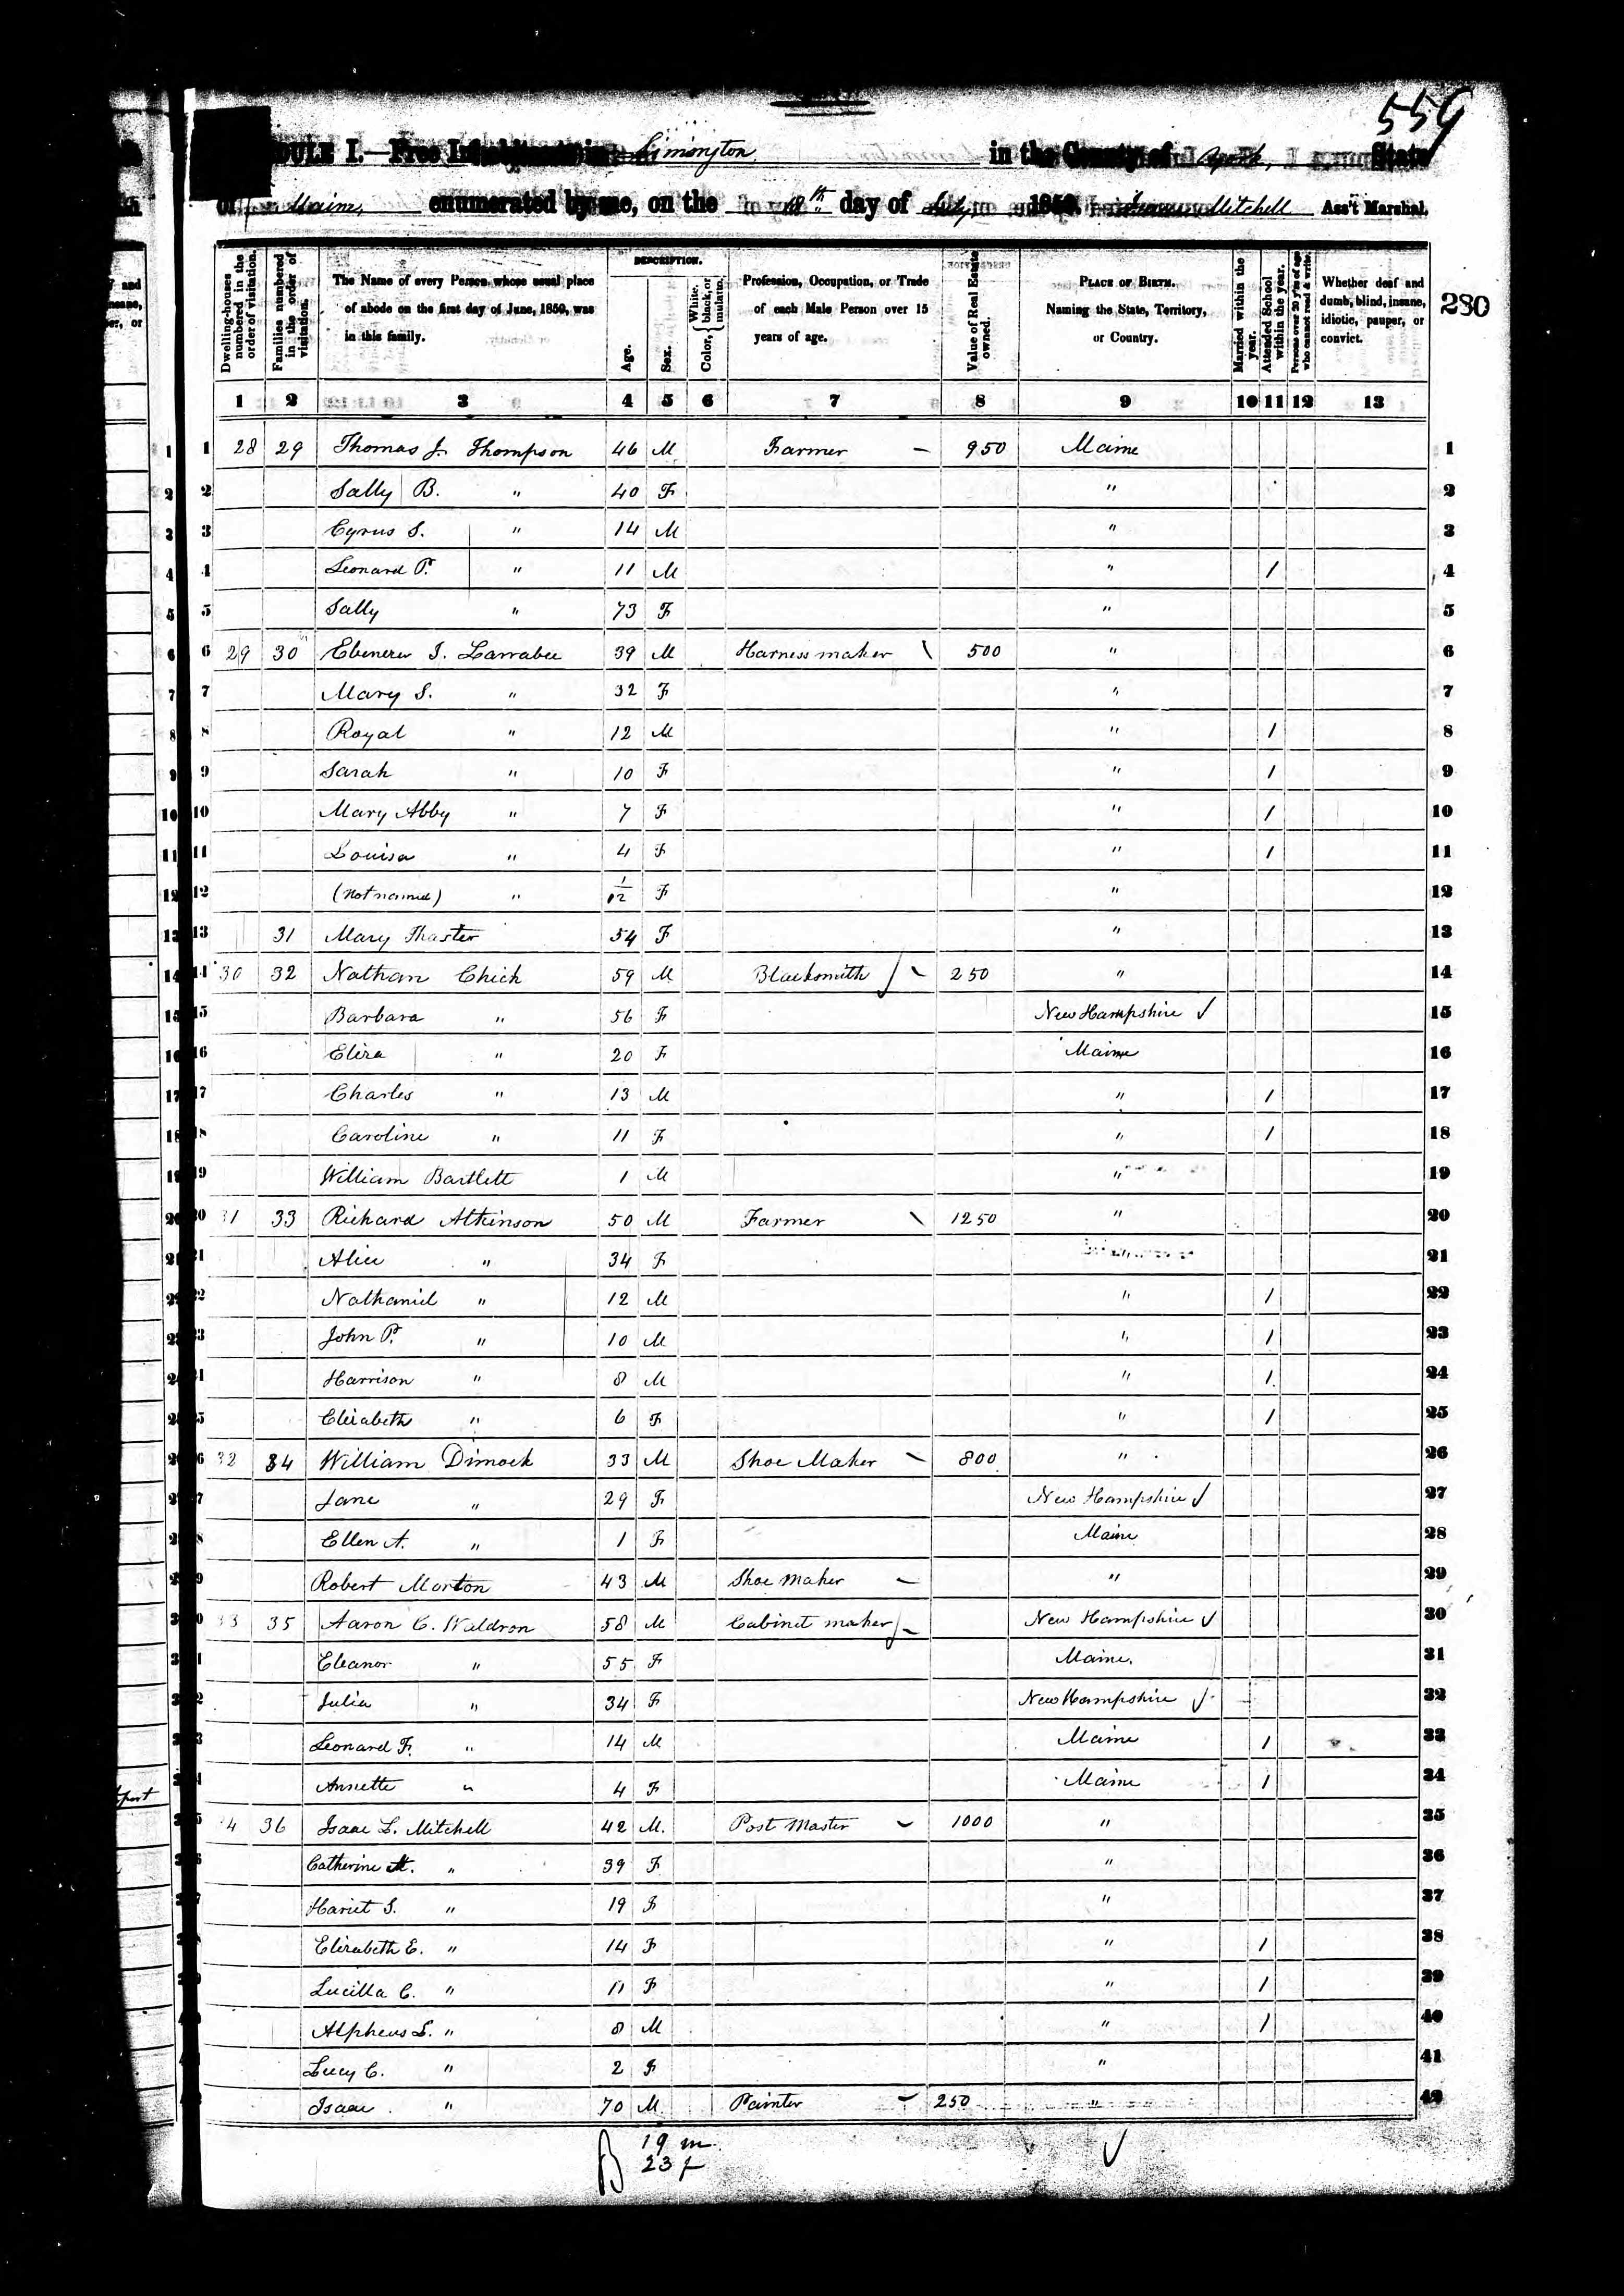 559
DULE I.—Free Inhabitants in Limington in the County of York, State
of Maine, enumerated by me, on the 18th day of July 1850. Mitchell Ass't Marshal.
280
Dwelling-houses numbered in the order of visitation.
Families numbered in the order of visitation.
The Name of every Person whose usual place of abode on the first day of June, 1850, was in this family.
DESCRIPTION.
Age.
Sex.
Color, { White, black, or mulatto.
Profession, Occupation, or Trade of each Male Person over 15 years of age.
Value of Real Estate owned.
PLACE OF BIRTH. Naming the State, Territory, or Country.
Married within the year.
Attended School within the year.
Persons over 20 y'rs of age who cannot read & write.
Whether deaf and dumb, blind, insane, idiotic, pauper, or convict.
1 2 3 4 5 6 7 8 9 10 11 12 13
1 28 29 Thomas J. Thompson 46 M Farmer 950 Maine 1
2 Sally B. " 40 F " 2
3 Cyrus S. " 14 M " 3
4 Leonard P. " 11 M " 1 4
5 Sally " 73 F " 5
6 29 30 Ebenezer I. Larrabee 39 M Harness maker 500 " 6
7 Mary S. " 32 F " 7
8 Royal " 12 M " 1 8
9 Sarah " 10 F " 1 9
10 Mary Abby " 7 F " 1 10
11 Louisa " 4 F " 1 11
12 (Not named) " 1/12 F " 12
13 31 Mary Thaster 54 F " 13
14 30 32 Nathan Chick 59 M Blacksmith 250 " 14
15 Barbara " 56 F New Hampshire ✓ 15
16 Eliza " 20 F Maine 16
17 Charles " 13 M " 1 17
18 Caroline " 11 F " 1 18
19 William Bartlett 1 M " 19
20 31 33 Richard Atkinson 50 M Farmer 1250 " 20
21 Alice " 34 F 21
22 Nathaniel " 12 M " 1 22
23 John P. " 10 M " 1 23
24 Harrison " 8 M " 1 24
25 Elizabeth " 6 F " 1 25
26 32 34 William Dimock 33 M Shoe Maker 800 " 26
27 Jane " 29 F New Hampshire ✓ 27
28 Ellen A. " 1 F Maine 28
29 Robert Morton 43 M Shoe maker " 29
30 33 35 Aaron C. Waldron 58 M Cabinet maker New Hampshire ✓ 30
31 Eleanor " 55 F Maine. 31
32 Julia " 34 F New Hampshire ✓ 32
33 Leonard F. " 14 M Maine 1 33
34 Annette " 4 F Maine 1 34
35 34 36 Isaac L. Mitchell 42 M. Post Master 1000 " 35
Catherine M. " 39 F " 36
Hariet S. " 19 F " 37
Elizabeth E. " 14 F " 1 38
Lucilla C. " 11 F " 1 39
Alpheus L. " 8 M " 1 40
Lucy C. " 2 F " 41
Isaac " 70 M Painter 250 " 42
19 m
23 f